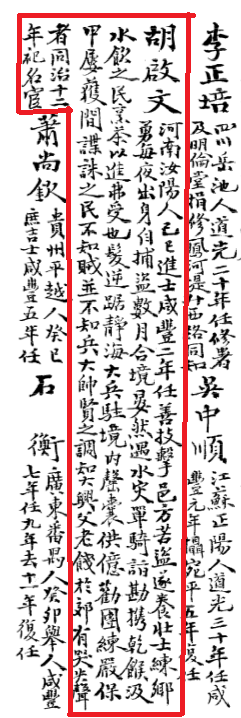 李正培
四川岳池人道光二十年任修署
及明倫堂捐修鳳河是升西路同知
吳中順
江蘇正陽人道光三十年任咸
豐元年調宛平五年復任
胡啟文
河南汝陽人己巳進士咸豐二年任善技擊邑方苦盜遂養壯士練鄉
勇每夜出身自捕盜數月合境晏然遇水災單騎詣勘攜乾餱汲
水飲之民烹茶以進弗受也髮逆踞靜海大兵駐境內罄囊供億勸團練嚴保
甲屢獲間諜誅之民不知賊並不知兵大帥賢之調知大興父老餞於郊有哭失聲
者同治十二
年祀名宦
蕭尚欽
貴州平越人癸巳
庶吉士咸豐五年任
石衡
廣東番禺人癸卯舉人咸豐
七年任九年去十一年復任